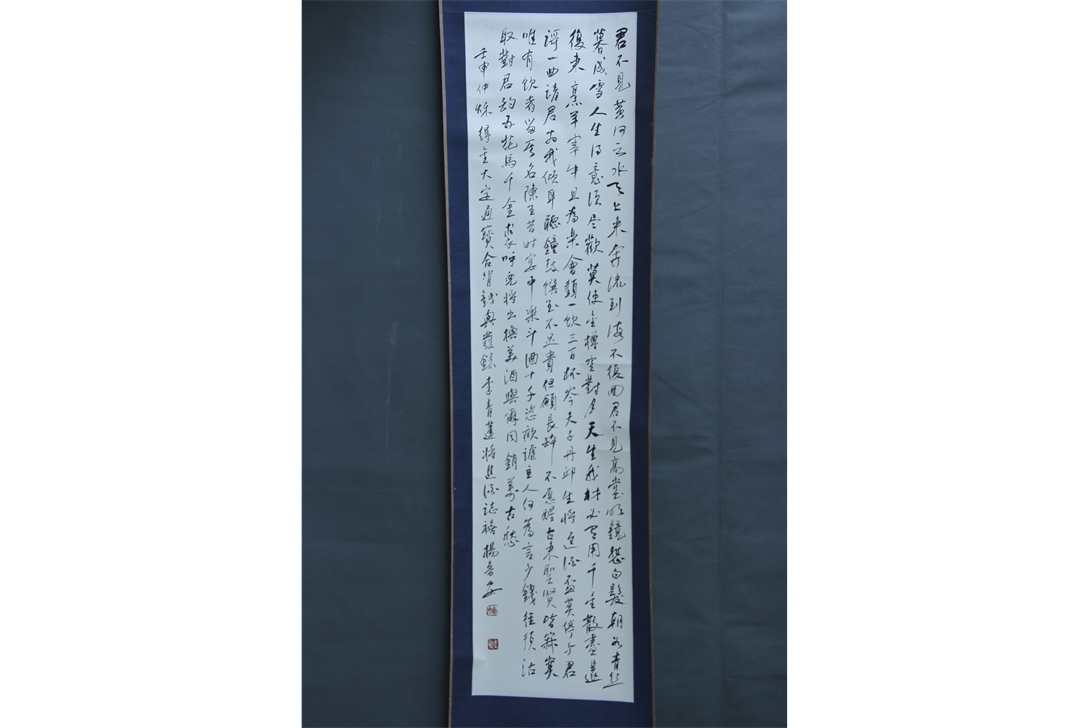 君不見黃河之水天上来奔流到海不復回君不見高堂明鏡悲白髮朝如青丝
暮成雪人生得意須尽歡莫使金樽空對月天生我材必有用千金散盡還
復来烹羊宰牛且為樂會須一飲三百杯岑夫子丹邱生将進酒盃莫停与君
謌一曲請君为我倾耳聽鐘鼓馔玉不足貴但願長醉不愿醒古来聖賢皆寂寞
唯有飲者留其名陳王昔時宴平樂斗酒十千恣歡謔主人何為言少錢徑須沽
取對君酌五花馬千金裘呼兒将出换美酒與爾同銷萬古愁
壬申仲秋得金大定通寳合背錢興發録李青蓮将進酒誌禧楊